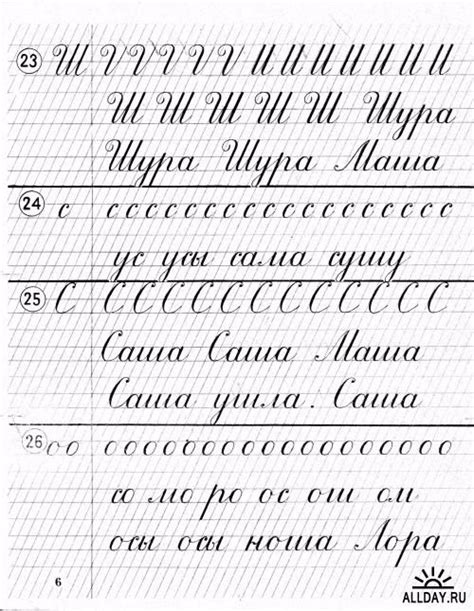 23 Ш И И И И И И И И И И И И
Ш Ш Ш Ш Ш Шура
Шура Шура Маша
24 с с с с с с с с с с с с с с с с с с с
ус усы сама сушу
25 С С С С С С С С С С С С С
Саша Саша Маша
Саша ушла. Саша
26 оо о о о о о о о о о о о о о о о о о о
со мо ро ос ош ом
осы осы ноша Лора
6
ALLDAY.RU